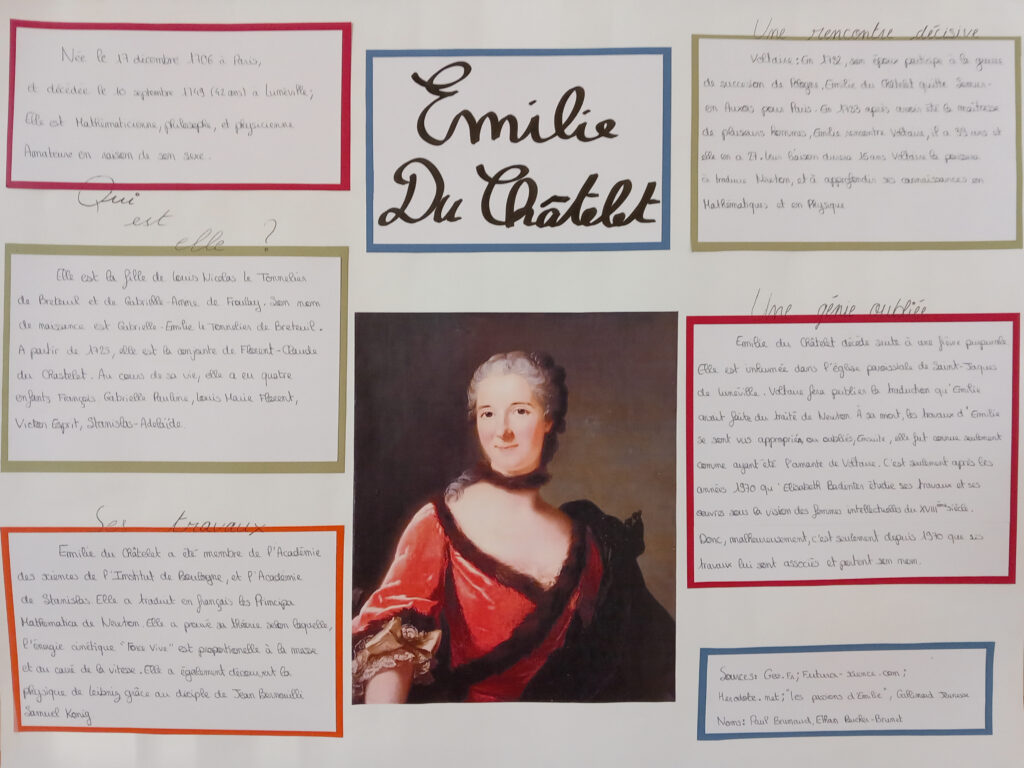 Emilie
Du Châtelet
Née le 17 décembre 1706 à Paris,
et décédée le 10 septembre 1749 (42 ans) à Lunéville ;
Elle est Mathématicienne, philosophe, et physicienne
Amateure en raison de son sexe.
Qui
est
elle ?
Elle est la fille de Louis Nicolas le Tonnelier
de Breteuil et de Gabrielle-Anne de Froullay. Son nom
de naissance est Gabrielle-Emilie le Tonnelier de Breteuil.
A partir de 1725, elle est la conjointe de Florent-Claude
du Chastelet. Au cours de sa vie, elle a eu quatre
enfants François Gabrielle Pauline, Louis Marie Florent,
Victor Esprit, Stanislas-Adélaïde.
Ses travaux
Emilie du Châtelet a été membre de l'Académie
des sciences de l'Institut de Boulogne, et l'Académie
de Stanislas. Elle a traduit en français les Principa
Mathematica de Newton. Elle a prouvé sa théorie selon laquelle,
l'énergie cinétique "Force Vive" est proportionelle à la masse
et au carré de la vitesse. Elle a également découvert la
physique de Leibniz grâce au disciple de Jean Bernouilli
Samuel König
Une rencontre décisive
Voltaire : En 1732, son époux participe à la guerre
de succession de Pologne, Emilie du Châtelet quitte Semur-
en Auxois pour Paris. En 1733 après avoir été la maîtresse
de plusieurs hommes, Emilie rencontre Voltaire, il a 39 ans et
elle en a 27. Leur liaison durera 16 ans Voltaire la poussera
à traduire Newton, et à approfondir ses connaissances en
Mathématiques et en Physique
Une génie oubliée
Emilie du Châtelet décède suite à une fièvre puerpérale.
Elle est inhumée dans l'église paroissiale de Saint-Jaques
de Lunéville. Voltaire fera publier la traduction qu'Emilie
avait faite du traité de Newton. À sa mort, les travaux d'Emilie
se sont vus appropriés ou oubliés, Ensuite, elle fut connue seulement
comme ayant été l'amante de Voltaire. C'est seulement après les
années 1970 qu'Elisabeth Badinter étudie ses travaux et ses
œuvres sous la vision des femmes intellectuelles du XVIIIème siècle.
Donc, malheureusement, c'est seulement depuis 1970 que ses
travaux lui sont associés et portent son nom.
Sources : Geo.Fr ; Futura-science.com ;
Herodote.net ; "les passions d'Emilie", Gallimard Jeunesse
Noms : Paul Ethan